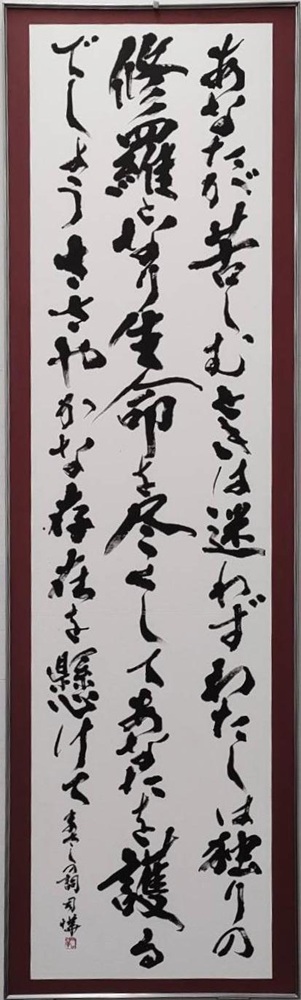 あなたが苦しむときは迷わずわたしは独りの
修羅となり生命を尽くしてあなたを護る
でしょうささやかな存在を懸けて
まさしの詞